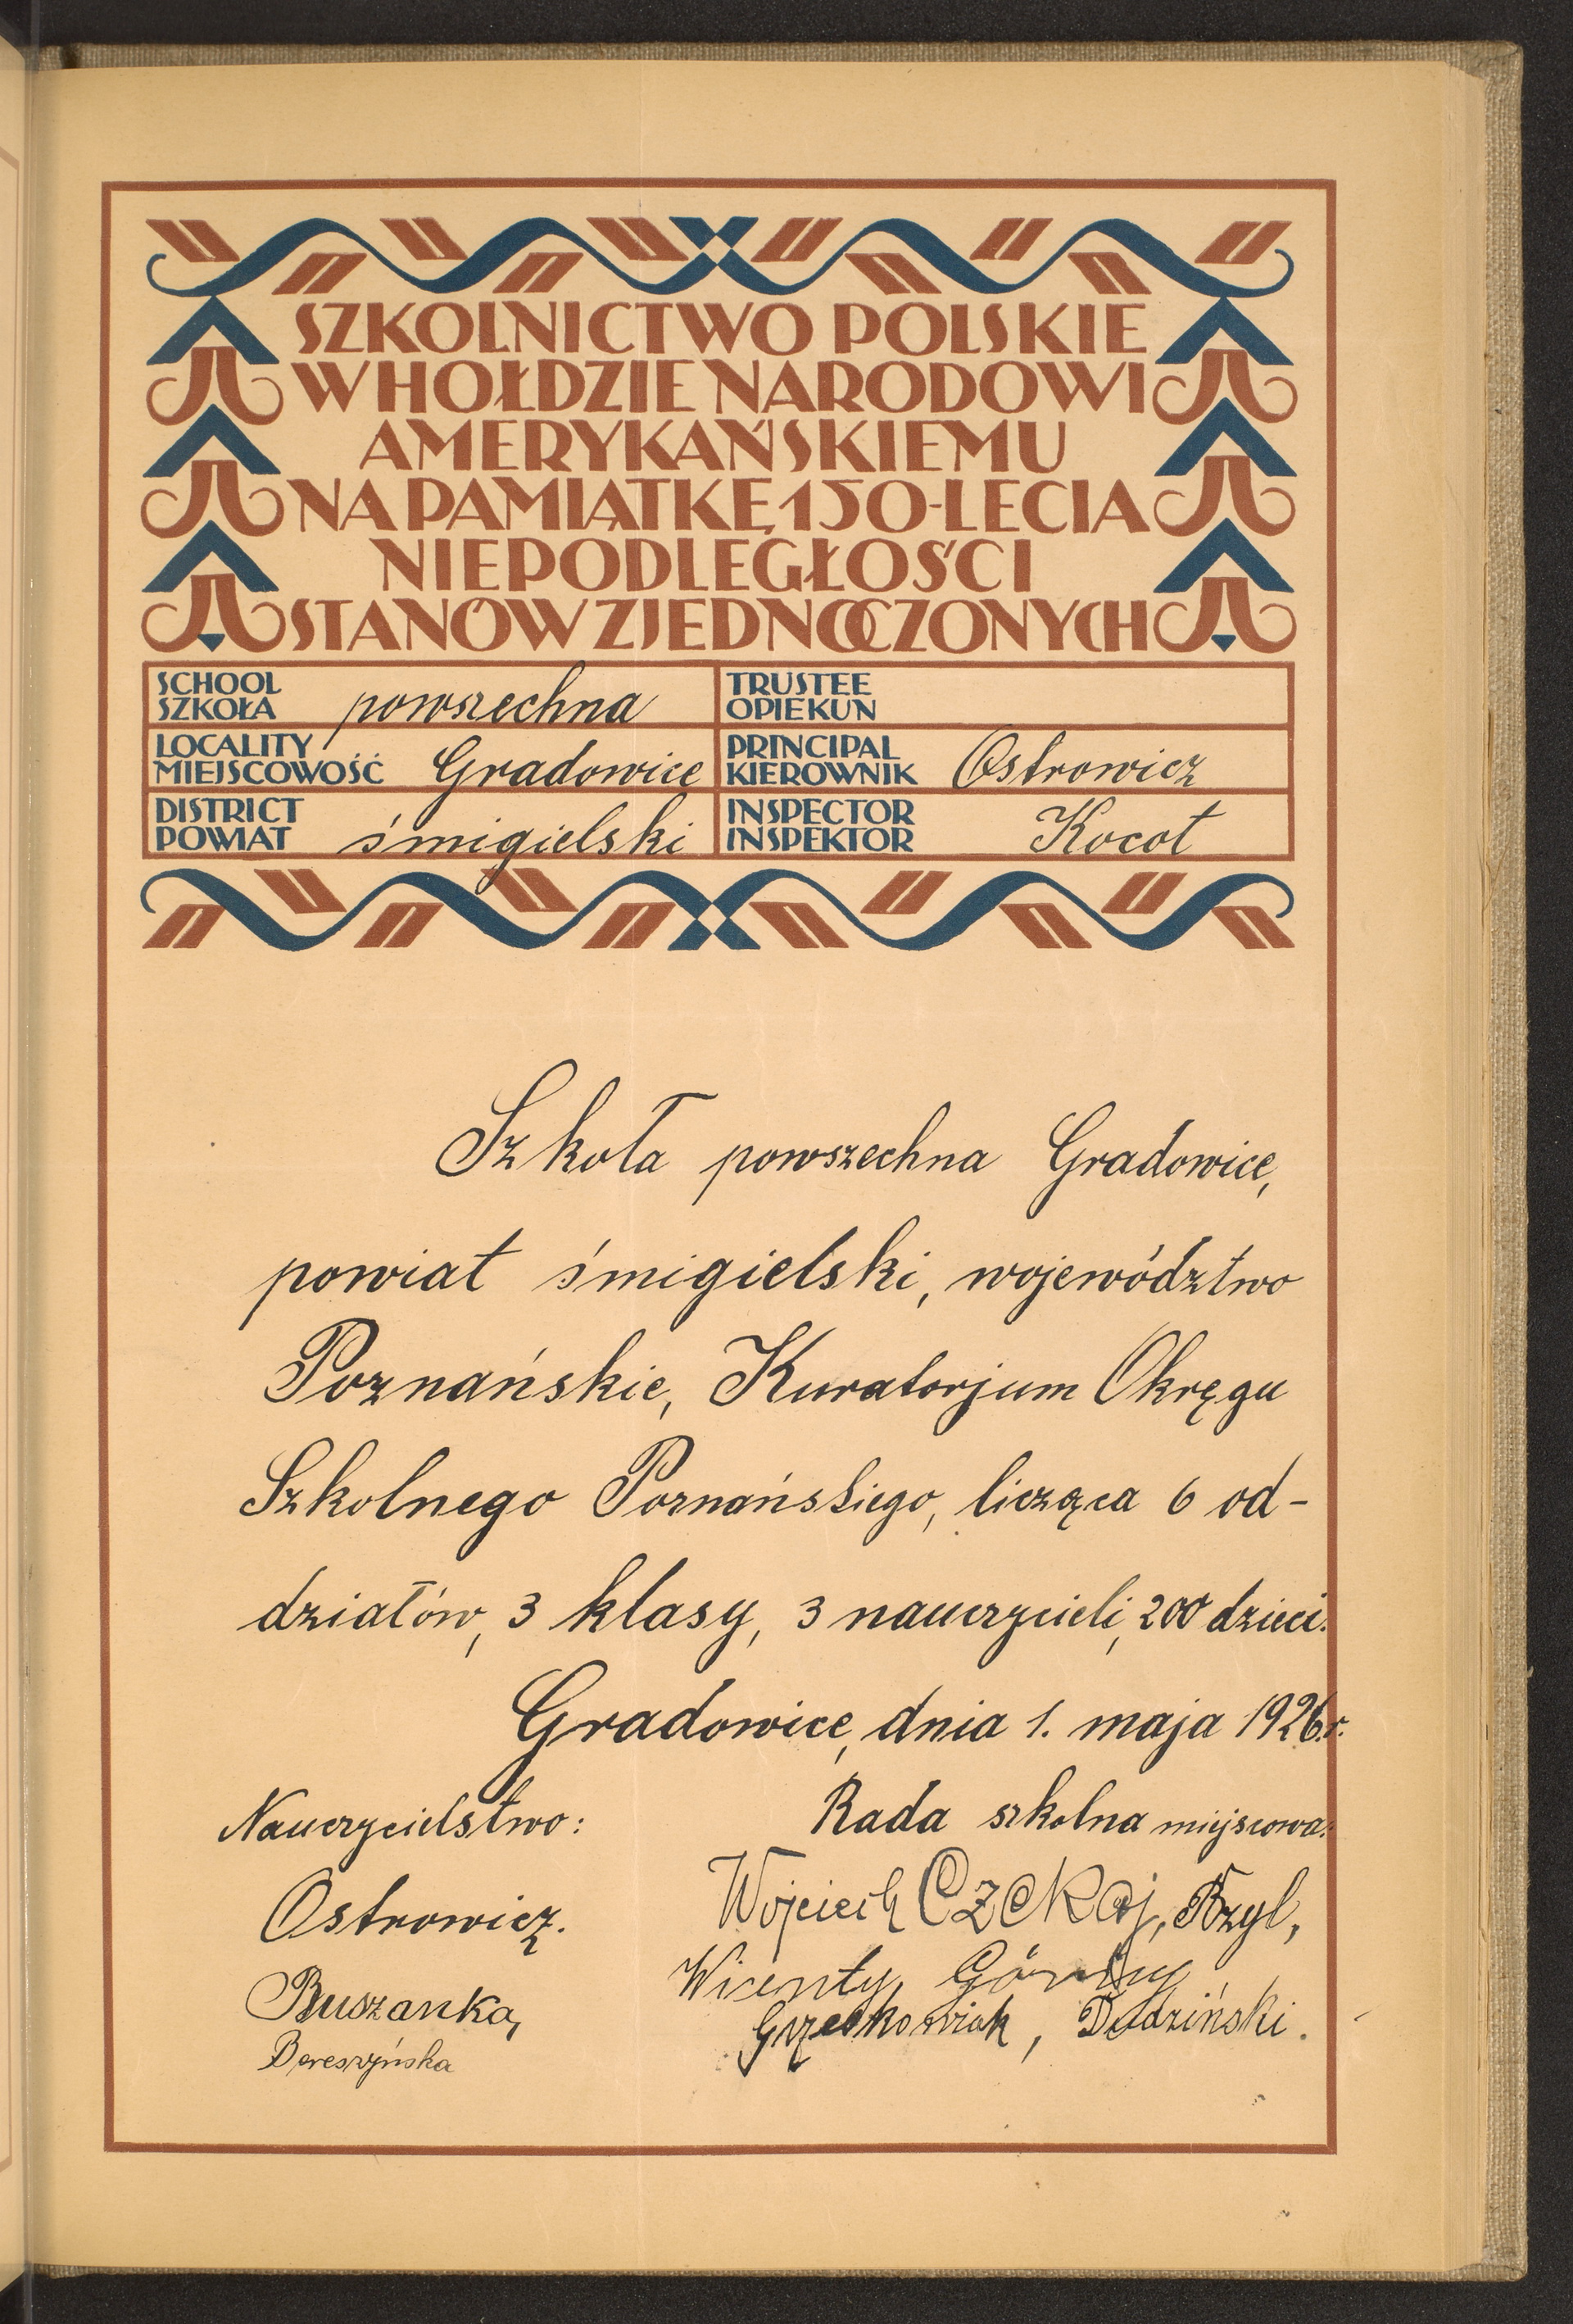 SZKOLNICTWO POLSKIE
W HOŁDZIE NARODOWI
AMERYKAŃSKIEMU
NA PAMIĄTKĘ 150-LECIA
NIEPODLEGŁOŚCI
STANÓW ZJEDNOCZONYCH
SCHOOL
SZKOŁA powszechna
TRUSTEE
OPIEKUN
LOCALITY
MIEJSCOWOŚĆ Gradowice
PRINCIPAL
KIEROWNIK Ostrowicz
DISTRICT
POWIAT śmigielski
INSPECTOR
INSPEKTOR Kocot
Szkoła powszechna Gradowice,
powiat śmigielski, województwo
Poznańskie, Kuratorjum Okręgu
Szkolnego Poznańskiego, licząca 6 od-
działów, 3 klasy, 3 nauczycieli, 200 dzieci.
Gradowice, dnia 1. maja 1926.r.
Nauczycielstwo:
Rada szkolna miejscowa:
Ostrowicz.
Wojciech Czekaj, Bzyl,
Ruszanka,
Wicenty Górny,
Grzeskowiak, Dudziński.
Bereszyńska